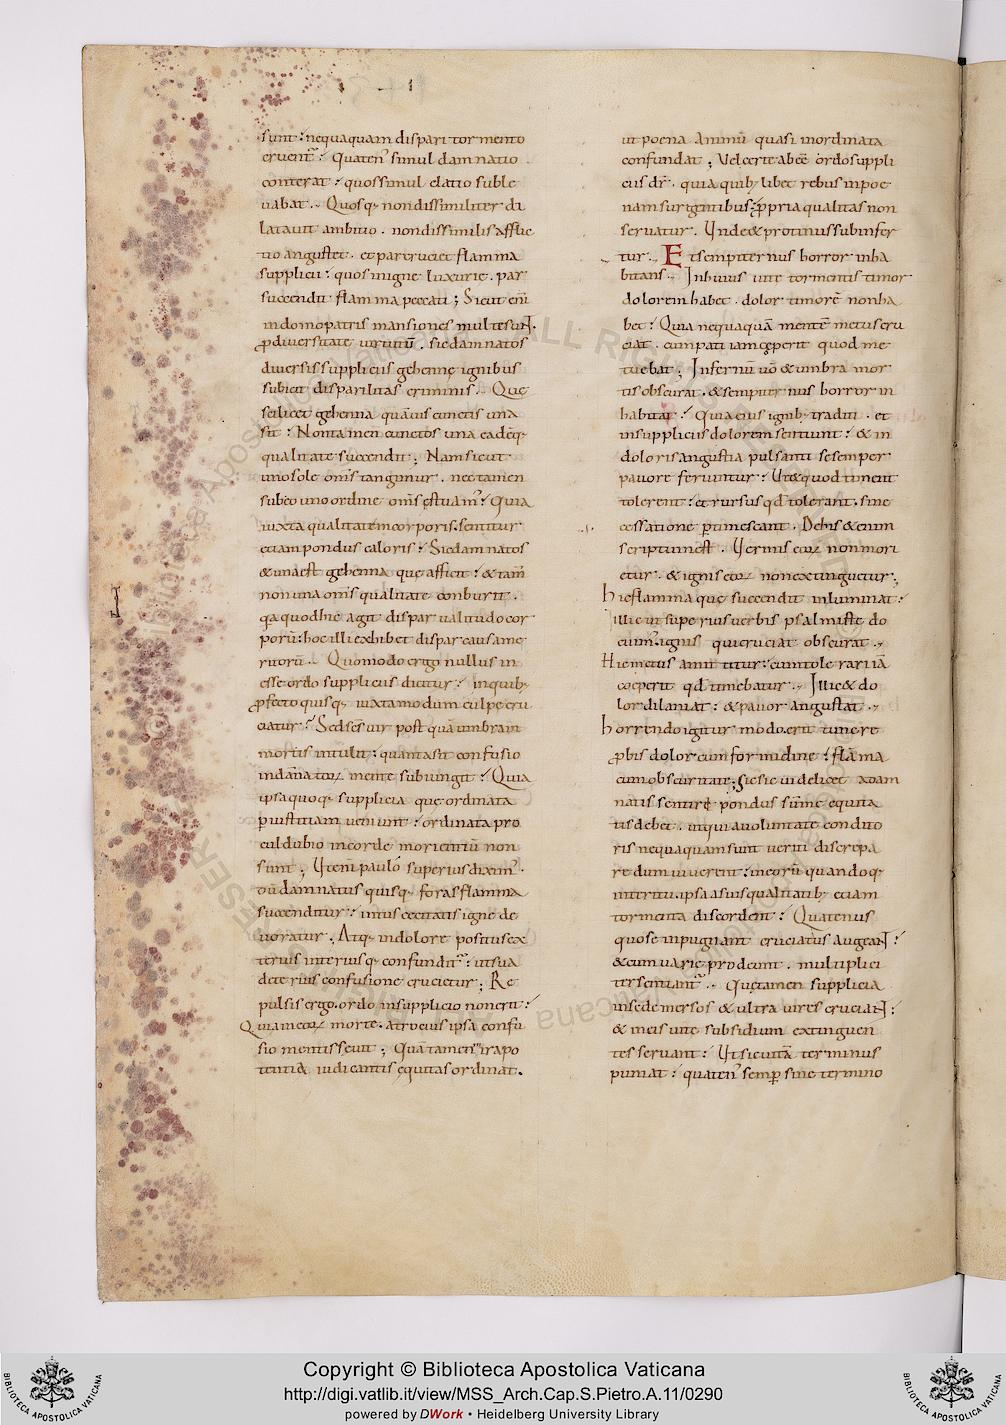 sunt: nequaquam dispari tormento
eruent̄: Quaten' simul damnatio
conterat: quos simul elatio suble
uabat. Quosq; non dissimiliter di
latauit ambitio. non dissimilis afflic
tio angustet. et par cruciet flamma
supplicii: quos in igne luxurie. par
succendit flamma peccati; Sicut eni
in domo patris mansiones multe sunt.
p diuersitate uirtutū. sic damnatos
diuersis suppliciis gehennę ignibus
subicit disparilitas criminis. Quę
scilicet gehenna quāuis cunctis una
sit: Non tamen cunctos una eadēq;
qualitate succendit; Nam sicut
uno sole om̄s tangimur. nec tamen
sub eo uno ordine om̄s ęstuam': Quia
iuxta qualitatem corporis. sentitur
etiam pondus caloris: Sic damnatos
& una est gehenna que afficit: & tam̄
non una om̄s qualitate conburit.
qa quod hic agit dispar ualitudo cor
porū: hoc illic exhibet dispar causa me
ritorū. Quomodo ergo nullus in
esse ordo suppliciis dicitur: in quib;
pfecto quisq; iuxta modum culpę cru
ciatur: Sed s̄es uir post quā umbram
mortis intulit: quanta sit confusio
in dānatorꝝ mente subiungit: Quia
ipsa quoq; supplicia que ordinata
p iustitiam ueniunt: ordinata pro
cul dubio in corde morientiū non
sunt; Ut enī paulo superius diximꝰ.
dū damnatus quisq; foras flamma
succenditur: intus cecitatis igne de
uoratur; Atq; in dolore positus ex
terius interiusq; confundit̄: ut sua
deterius confusione crucietur; Re
pulsis ergo. ordo in supplicio non erit:
Quia in eorꝝ morte. atrocius ipsa confu
sio mentis seuit; Quā tamen mira po
tentia iudicantis ęquitas ordinat.
ut poena animū quasi inordinata
confundat; Vel certe abeē ordo suppli
ciis dr̄. quia quib; libet rebus in poe
nam surgentibus. ppria qualitas non
seruatur. Unde & protinus subinfer
tur. Et sempiternus horror inha
bitans. In huius uite tormentis timor
dolorem habet. dolor timorē non ha
bet: Quia nequaquā mentē metus cru
ciat. cum pati iam cęperit quod me
tuebat; Infernū uō & umbra mor
tis obscurat. & sempiternus horror in
habitat: Quia eius ignib; traditi. et
in suppliciis dolorem sentiunt: & in
doloris angustia pulsanti se semper
pauore feriuntur: Ut & quod timent
tolerent: et rursus qd̄ tolerant. sine
cessatione ptimescant. De his & enim
scriptum est. Uermis eorꝝ non mori
etur. & ignis eorꝝ non extinguetur.
hic flamma que succendit inluminat:
illic ut superius uerbis psalmistę do
cuimꝰ. ignis qui cruciat obscurat.
Hic metus amittitur: cum tolerari iā
coeperit qd̄ timebatur. Illic & do
lor dilaniat: & pauor angustat.
horrendo igitur modo. erit tunc re
pbis dolor cum formidine: flāma
cum obscuritate; Sic sic uidelicet a dam
natis sentiri pondus sūmę equita
tis debet. ut qui a uoluntate condito
ris nequaquam sunt ueriti discrepa
re dum uiuerent: in eorū quandoq;
interitu. ipsa a suis qualitatib; etiam
tormenta discordent: Quatenus
quo se inpugnant cruciatus augeant:
& cum uarie prodeunt. multiplici
ter sentiant̄. Quę tamen supplicia
in se demersos & ultra uires cruciant:
& in eis uite subsidium extinguen
tes seruant: Ut sic uitā terminus
puniat: quaten' semp̄ sine termino
Copyright © Biblioteca Apostolica Vaticana
http://digi.vatlib.it/view/MSS_Arch.Cap.S.Pietro.A.11/0290
powered by DWork • Heidelberg University Library
BIBLIOTECA APOSTOLICA VATICANA
BIBLIOTECA APOSTOLICA VATICANA